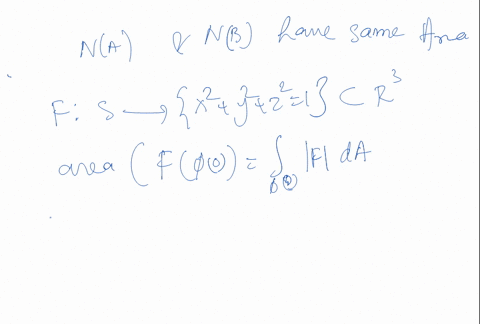 N(A) & N(B) have same Area
F: S ⟶ {x²+y²+z²=1} ⊂ R³
area (F(φ(Θ)) = ∫_{φ(Θ)} |F| dA